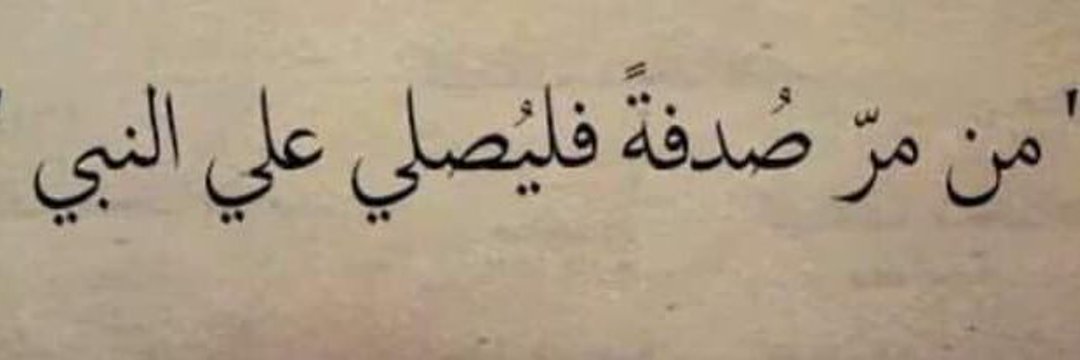 ' من مرّ صُدفةً فليُصلي علي النبي '